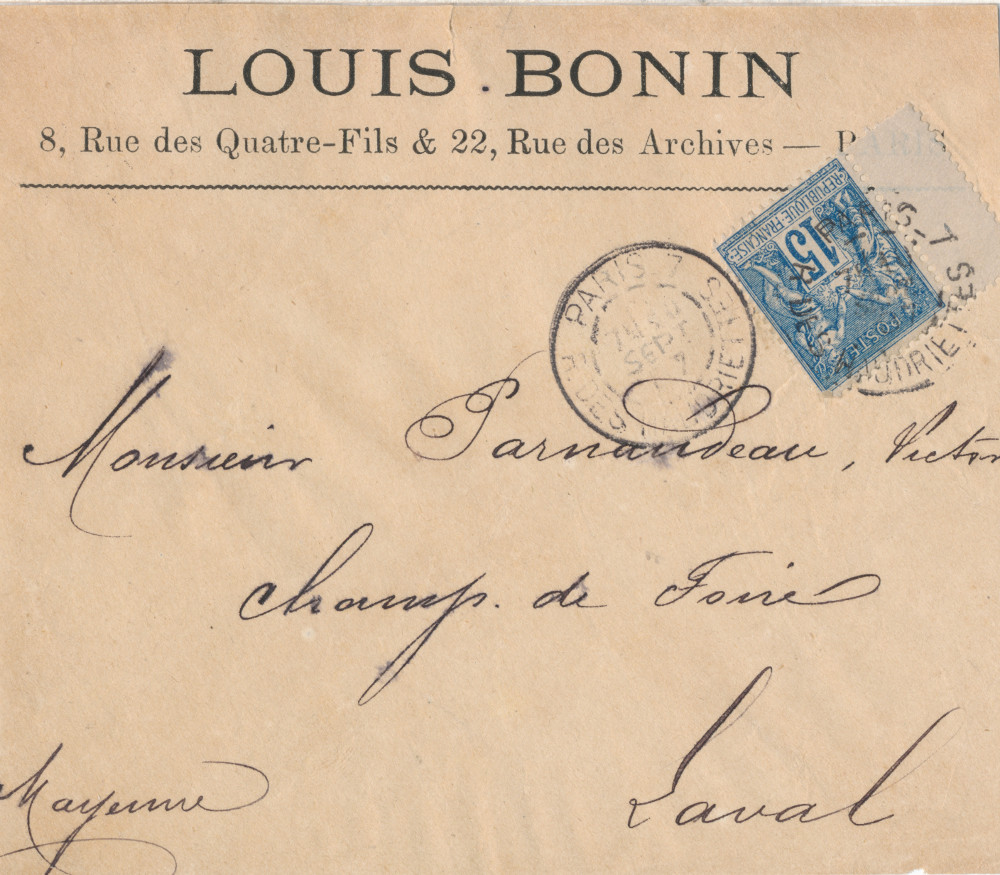 LOUIS BONIN
8, Rue des Quatre-Fils & 22, Rue des Archives — PARIS
REPUBLIQUE FRANÇAISE
15
POSTES
PARIS 7
SEPT
7
R. DES HAUDRIETTES
PARIS - 7
R. DES HAUDRIETTES
Monsieur Parnaudeau, Victor
champ. de Foire
Laval
Mayenne